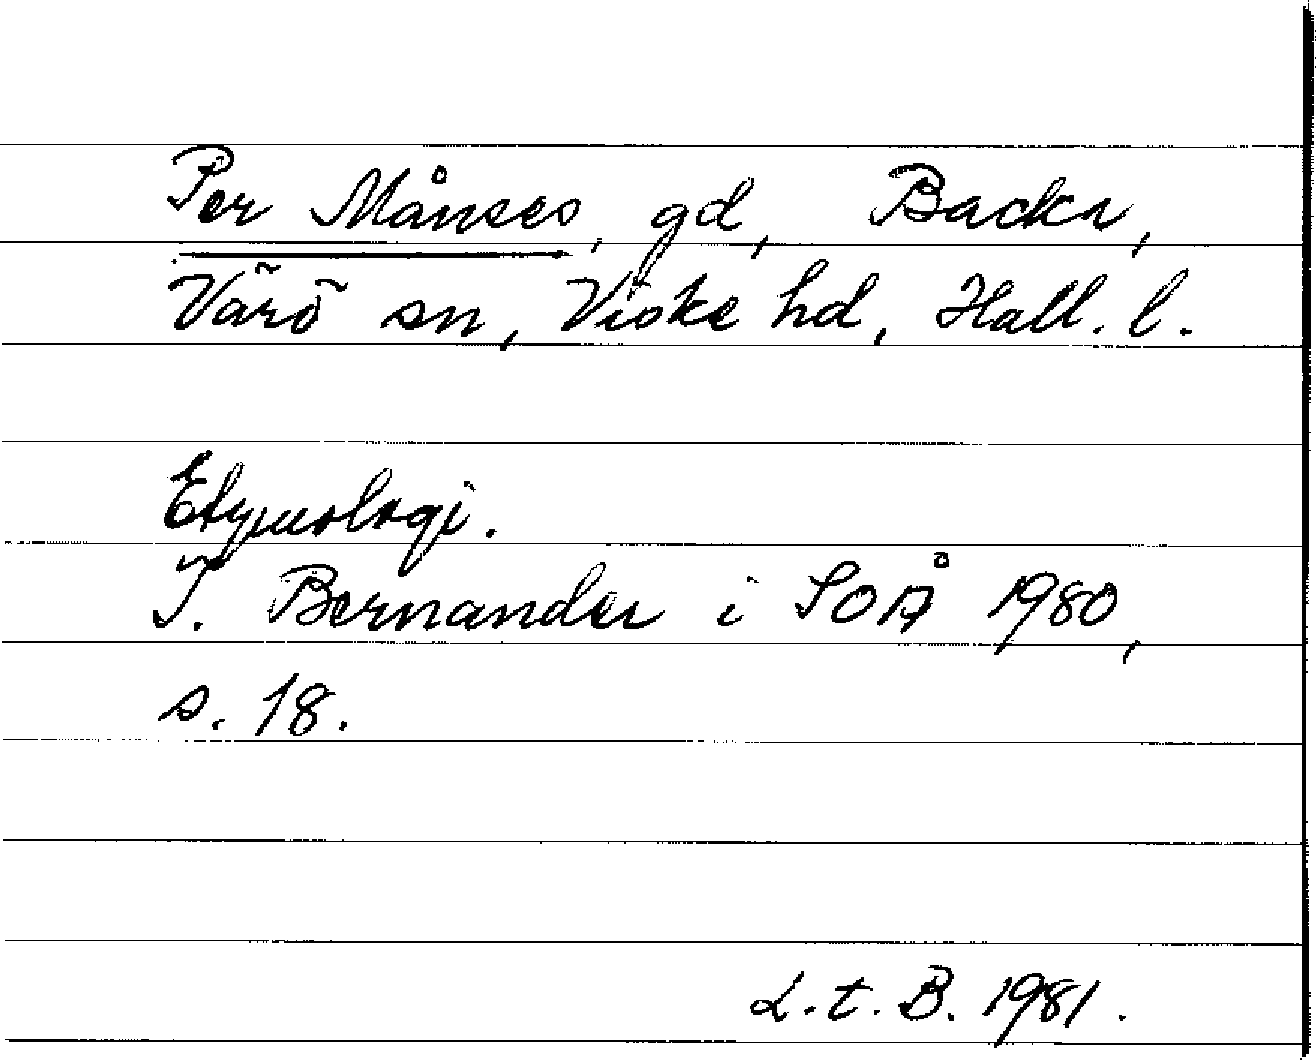 Per Månses, gd, Backa,
Värö sn, Viske hd, Hall. l.
Etymologi.
I. Bernander i SOÅ 1980,
s. 18.
L.t.B. 1981.